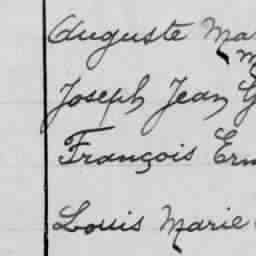 Auguste Ma
Joseph Jean G
François Ern
Louis Marie